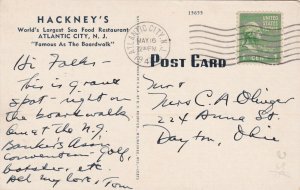 HACKNEY'S
World's Largest Sea Food Restaurant
ATLANTIC CITY, N. J.
"Famous As The Boardwalk"
15655
ATLANTIC CITY
MAY 16
POST CARD
Hi Folks-
This is grand
spot - right on
the boardwalk
here at the N.J.
Banker's Assn
Convention - Golf,
lobster, etc.
All my love, Tom
Mrs C. A. Olinger
224 Anna St
Dayton, Ohio